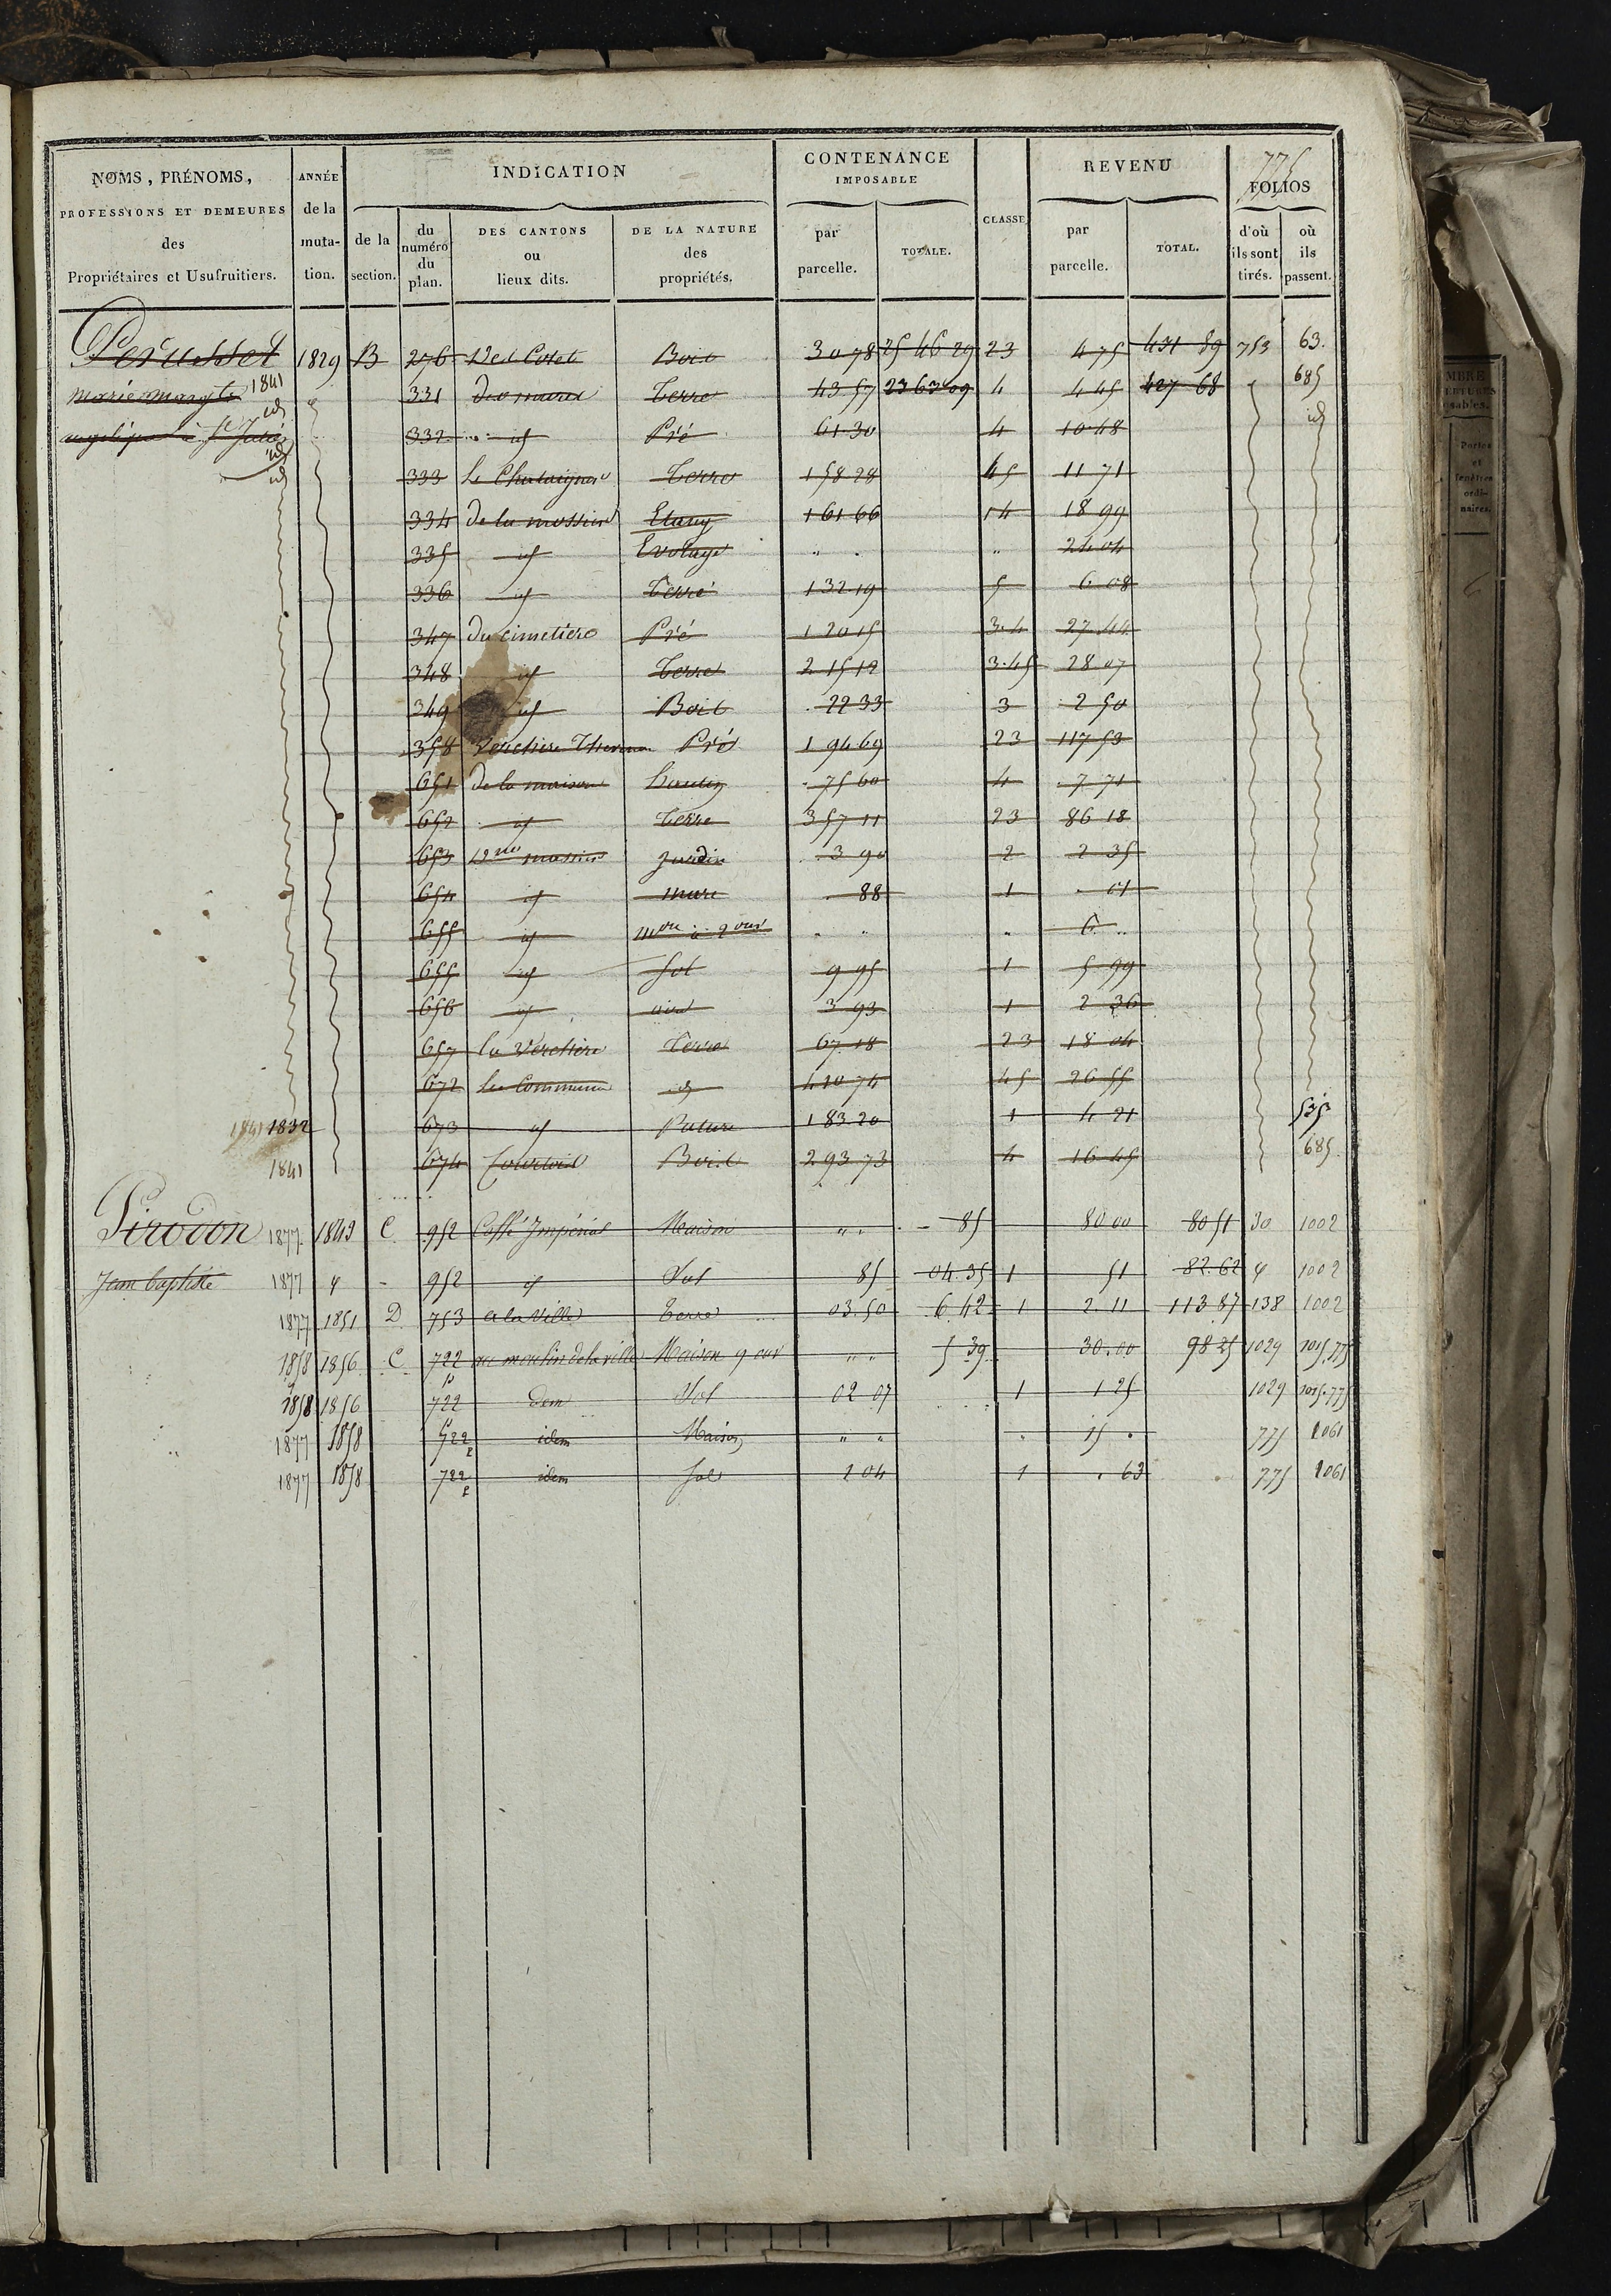 775
NOMS, PRÉNOMS, PROFESSIONS ET DEMEURES des Propriétaires et Usufruitiers.
ANNÉE de la muta-tion.
INDICATION
de la section.
du numéro du plan.
DES CANTONS ou lieux dits.
DE LA NATURE des propriétés.
CONTENANCE IMPOSABLE
par parcelle.
TOTALE.
CLASSE
REVENU
par parcelle.
TOTAL.
FOLIOS
d'où ils sont tirés.
où ils passent.
Perusset 1829 B 276 Des Cotet Bois 30 78 25 46 29 23 4 75 431 89 753 63.
marie margte 1841 331 des mures Terre 43 57 23 63 09 4 4 45 427 68 685
à St Julien id 332 id Pré 61 30 4 10 48 id
id 333 Le Chataignier Terre 1 58 28 45 11 71
334 de la mossiere Etang 1 61 66 14 18 99
335 id Evolage " " " 24 04
336 id Terre 1 32 19 5 6 08
347 du cimetiere Pré 1 20 15 3.4 27 44
348 id Terre 2 15 12 3.45 28 07
349 id Bois 22 33 3 2 50
358 Verchere Pré 1 94 69 23 117 53
651 de la maison hautin 75 60 4 7 71
652 id Terre 3 57 11 23 86 18
653 jardin 3 90 2 2 35
654 id mare 88 1 01
655 id mon à 2 ouv " " " 6 "
655 id Sol 9 95 1 5 99
656 id aire 3 93 1 2 36
657 la Verchere Terre 67 18 23 18 04
672 les Communes id 4 20 74 45 26 55
1841 1832 673 id Pature 1 83 20 1 4 21 535
1841 674 Bois 2 93 73 4 16 45 685
Pirodon 1877 1843 C 952 Caffé Impérial Maison " " 85 80 00 80 51 30 1002
Jean baptiste 1877 952 id Sol 85 04.35 1 51 82.62 1002
1877 1851 D 753 a la ville Terre 03.50 6.42 1 2.11 113 87 138 1002
1858 1856 C 722 au moulin de la ville Maison 9 ouv " " 5 39 30.00 98 25 1029 1015.775
1858 1856 722 p idem Sol 02 07 1 1 25 1029 1015.775
1877 1858 722 p idem Maison " " " 15 . 775 1061
1877 1858 722 p idem Sol 1 04 1 . 63 775 1061
MBRE
ERTURES
osables.
Portes
et
fenêtres
ordi-
naires.